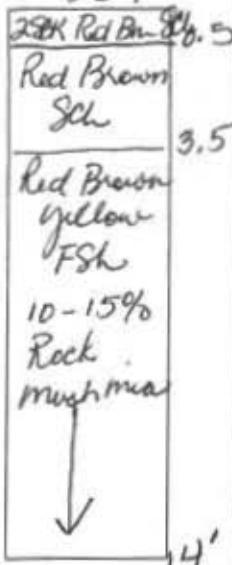 2SBK Red Brn Scl 0.5
Red Brown
Scl
3.5
Red Brown
yellow
FSL
10-15%
Rock
much mica
14'